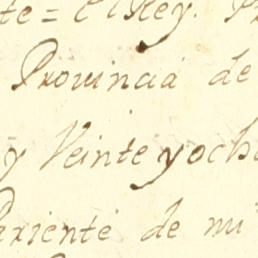 te = el Rey.
Provincia de
y Veinte yocho
Pariente de mi